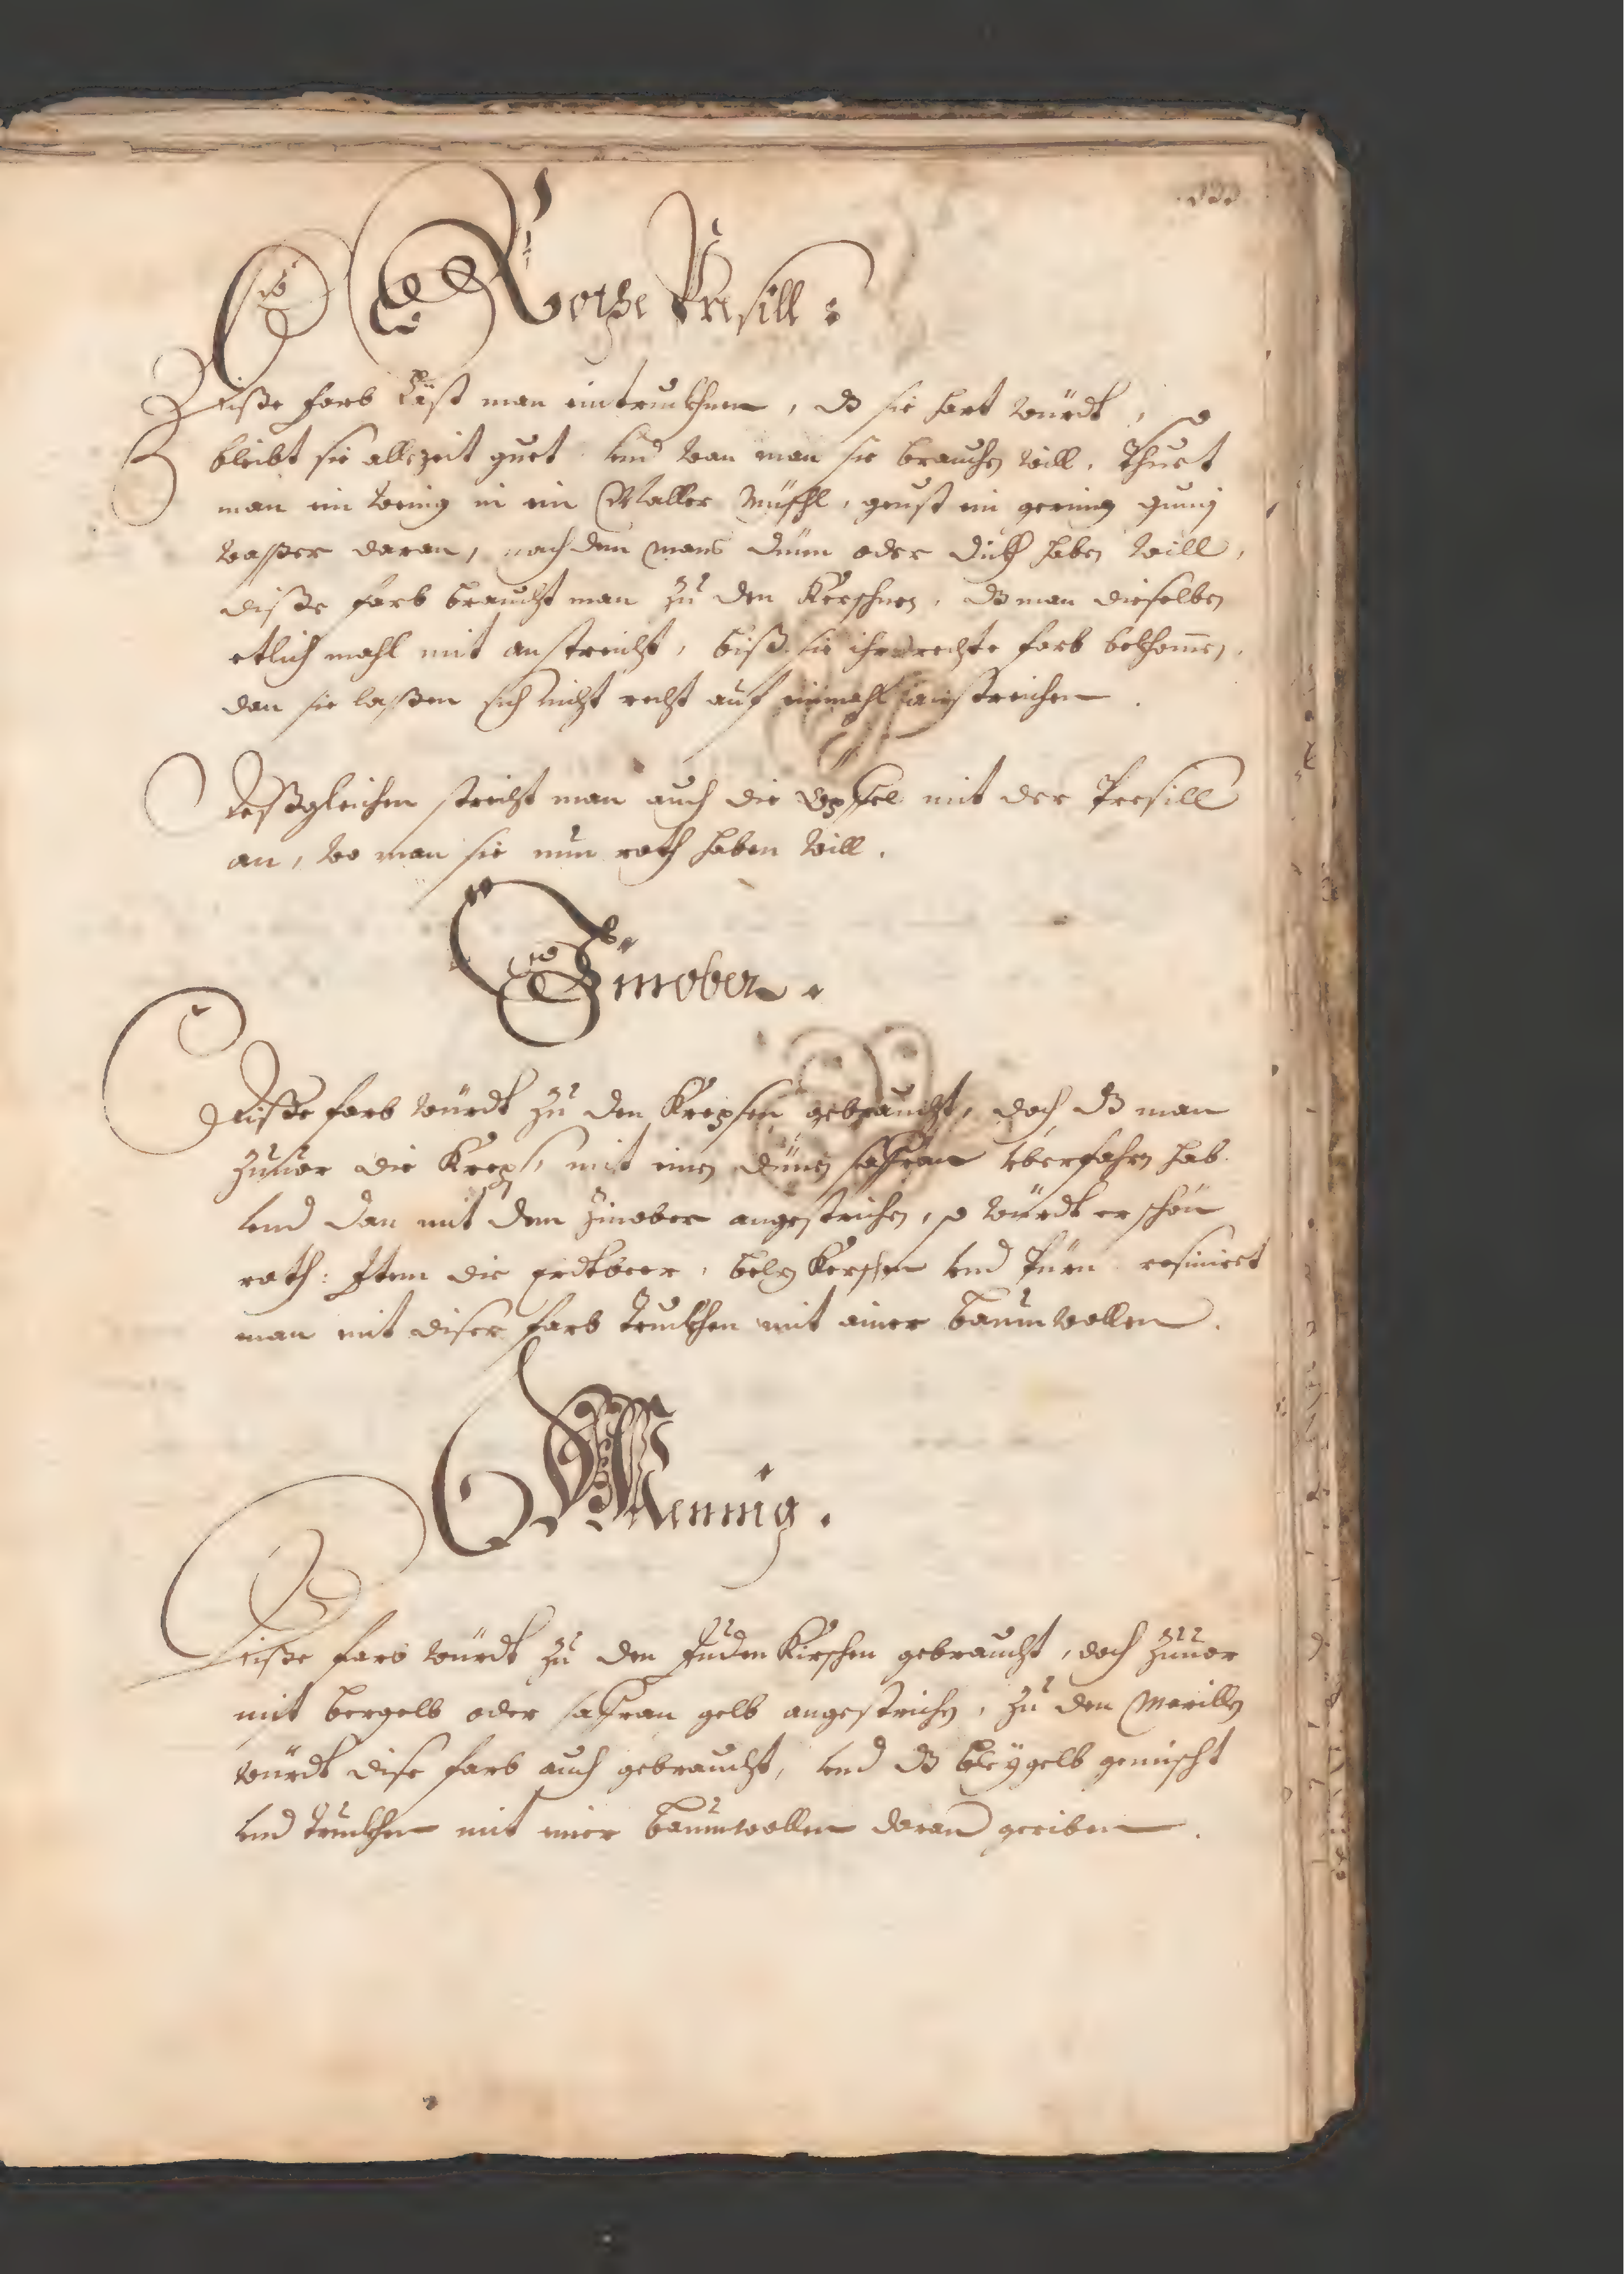 Rothe Presill :
Diße farb läst man eintrucknen, dz sie hart würdt, so
bleibt sie allezeit guet. Und wan man sie brauchen will, Thuet
man ein wenig in ein Maller Müschl, geust ein gering gumj
waßer daran, nach dem mans dünn oder dickh haben will,
diße farb braucht man zu den Kerschen, dz man dieselben
etlich mahl mit anstreicht, biß sie ihre rechte farb bekhomen,
dan sie laßen sich nicht recht auf einmahl anstreichen.
Deßgleichen streicht man auch die Öpffel mit der Presill
an, wo man sie nun roth haben will.
Zinober.
Diße farb würdt zu den Krepsen gebraucht, doch dz man
zuuor die Kreps, mit einen dünen saffran vberfahren hab
vnd dan mit dem Zinober angestrichen, so würdt er schön
roth: Item die Erdtbeer, Kerschen vnd Pürn resiniert
man mit diser farb truckhen mit ainer baumwollen.
Mennig.
Diße farb würdt zu den Juden Kirschen gebraucht, doch zuuor
mit bergelb oder saffran gelb angestrichen, zu den Marillen
würdt dise farb auch gebraucht, vnd dz bleygelb gemischt
vnd truckhen mit einer baumwollen daran gerieben.